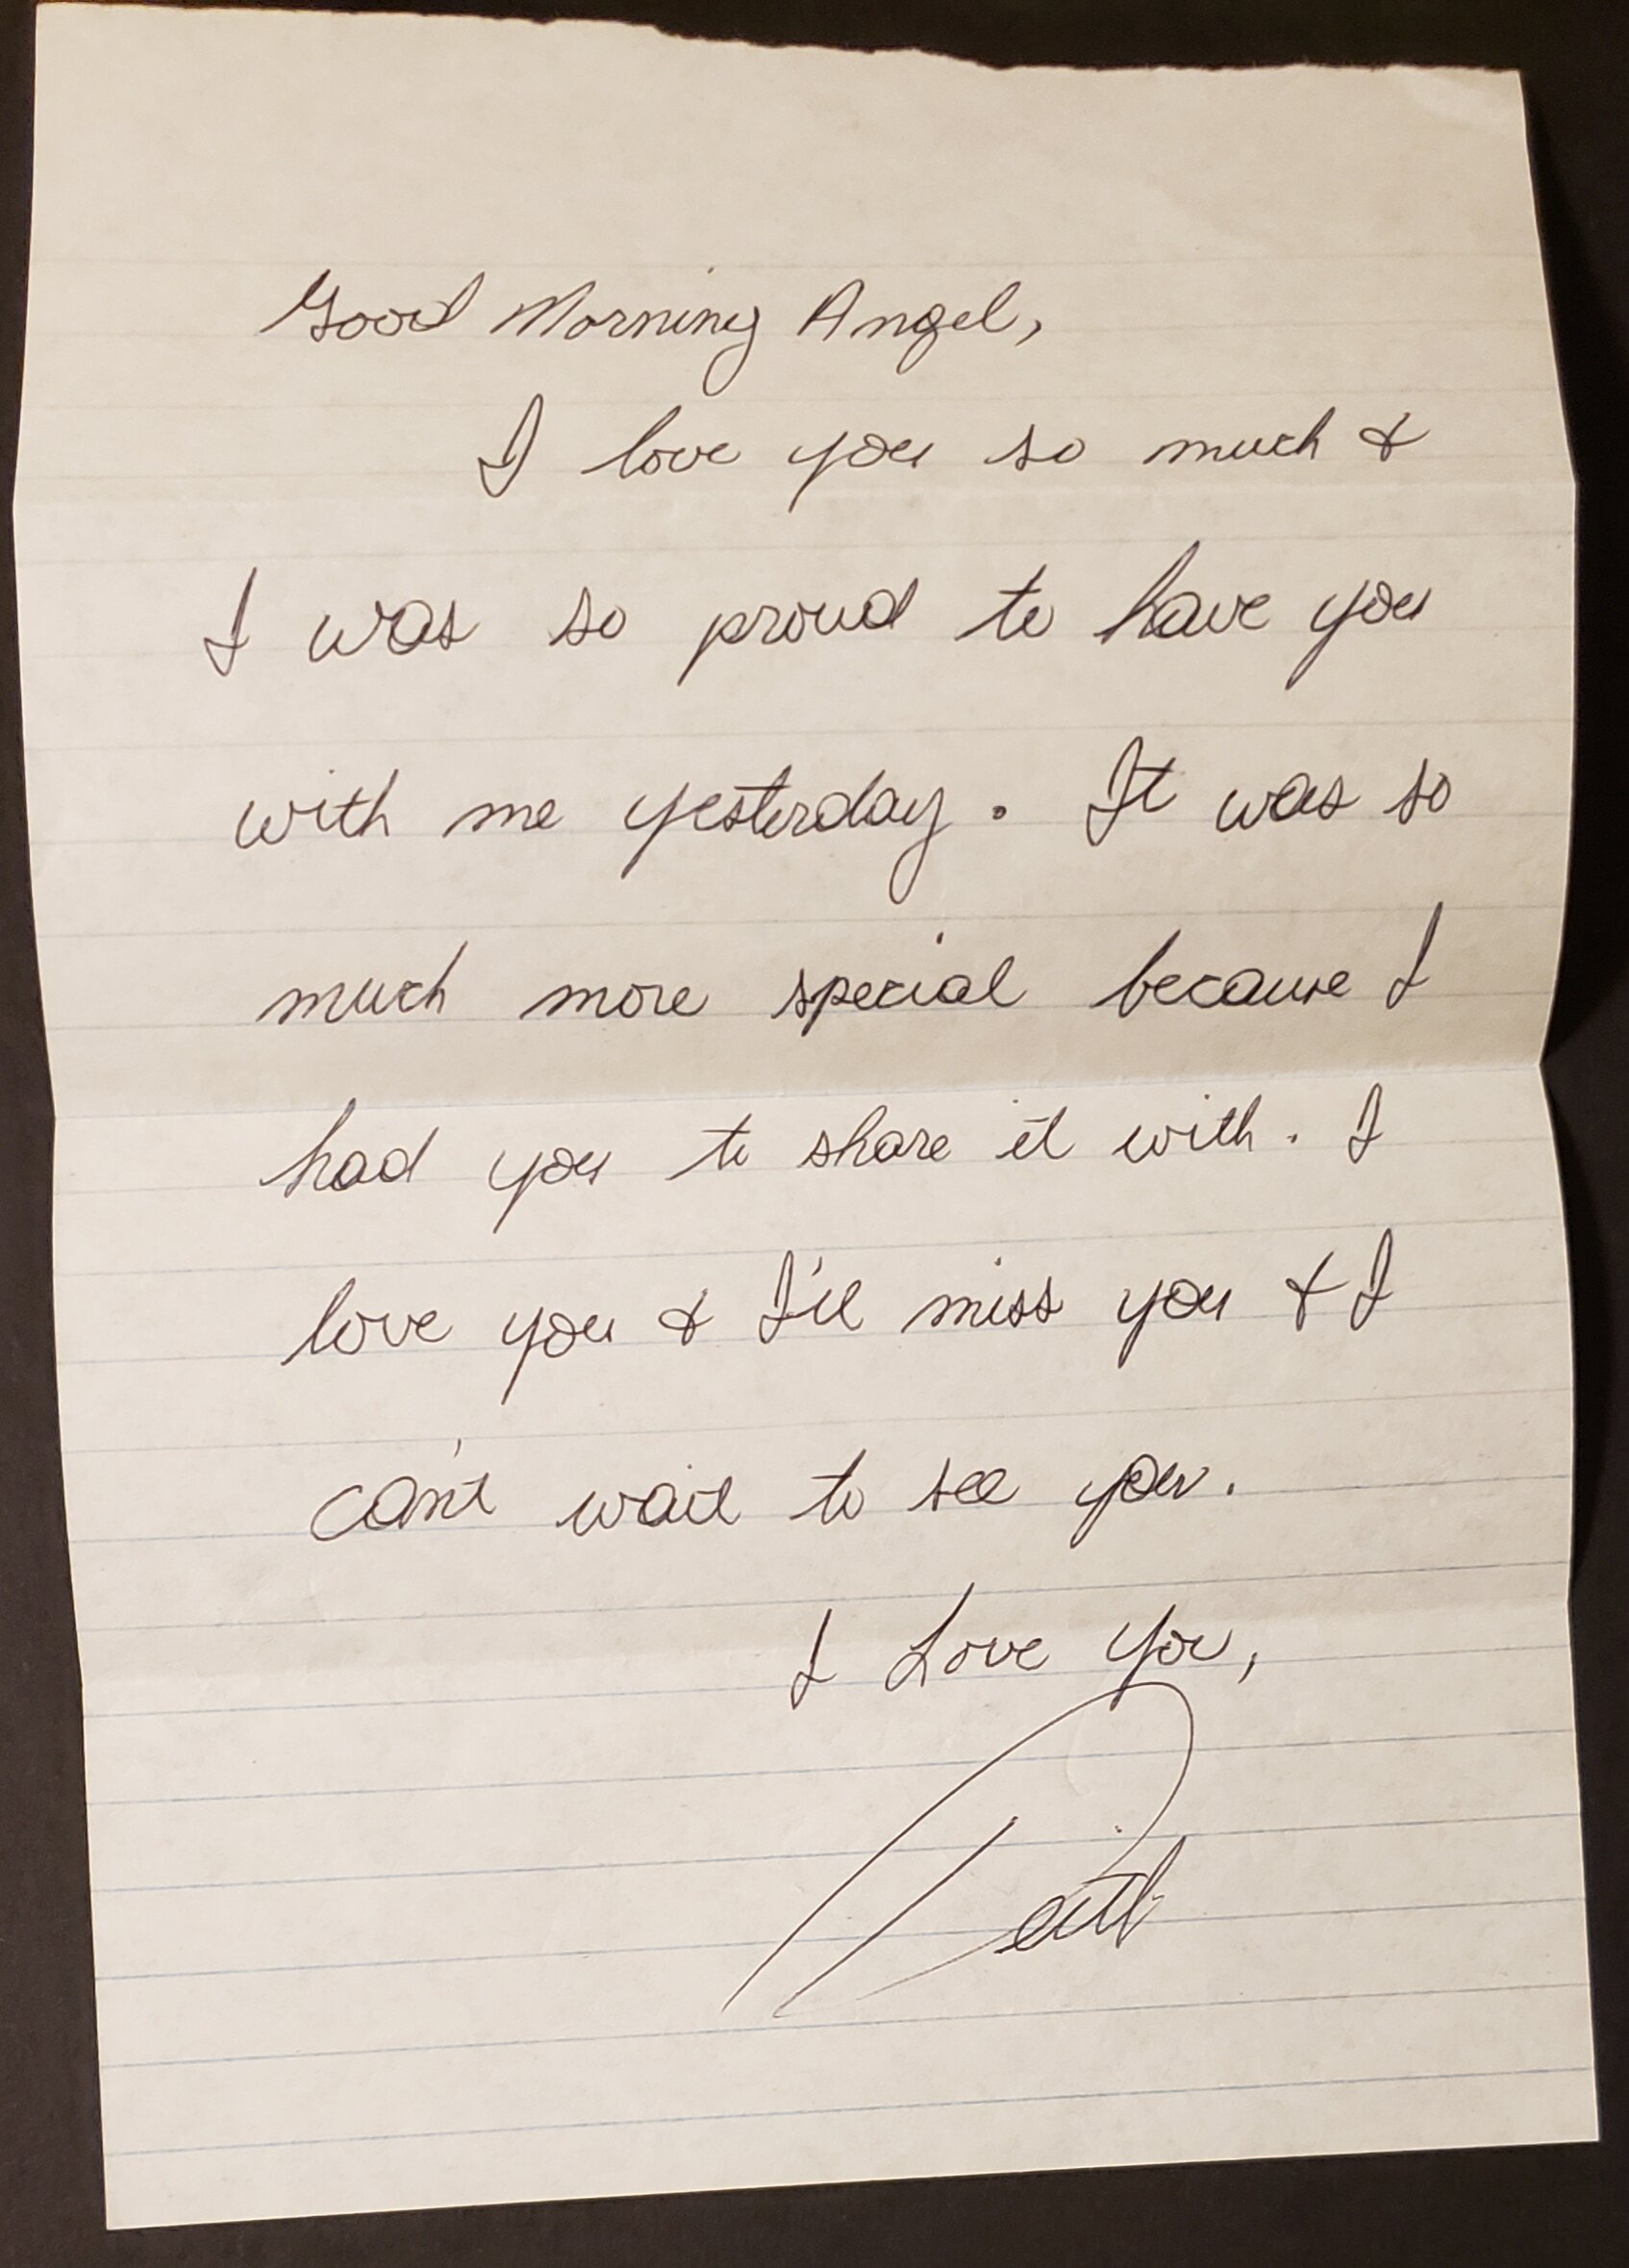 Good Morning Angel,
I love you so much &
I was so proud to have you
with me yesterday. It was so
much more special because I
had you to share it with. I
love you & I'll miss you & I
can't wait to see you.
I Love You,